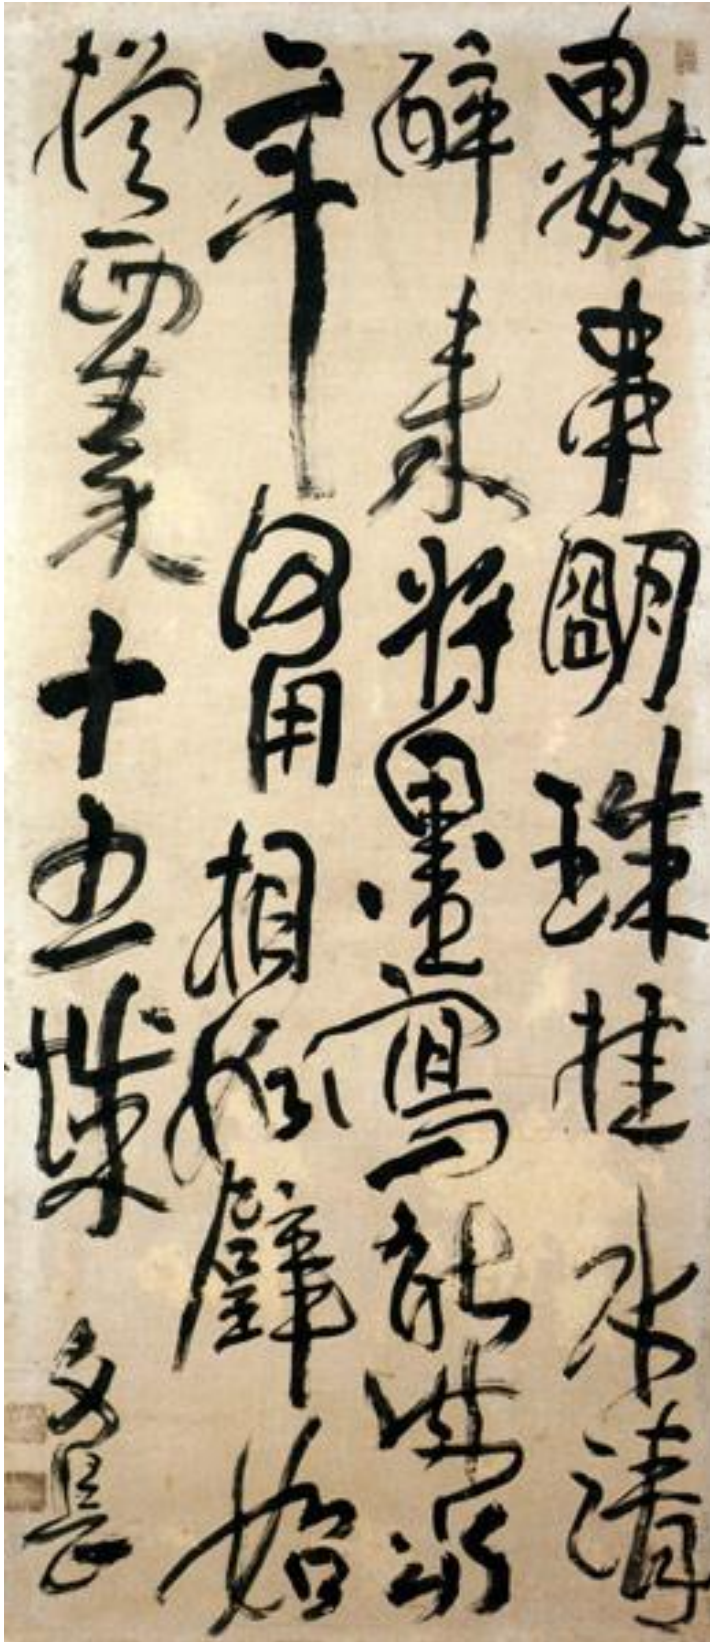 數串明珠挂水清
醉來將墨寫能成當
年何用相如璧始
換西秦十五城 文長